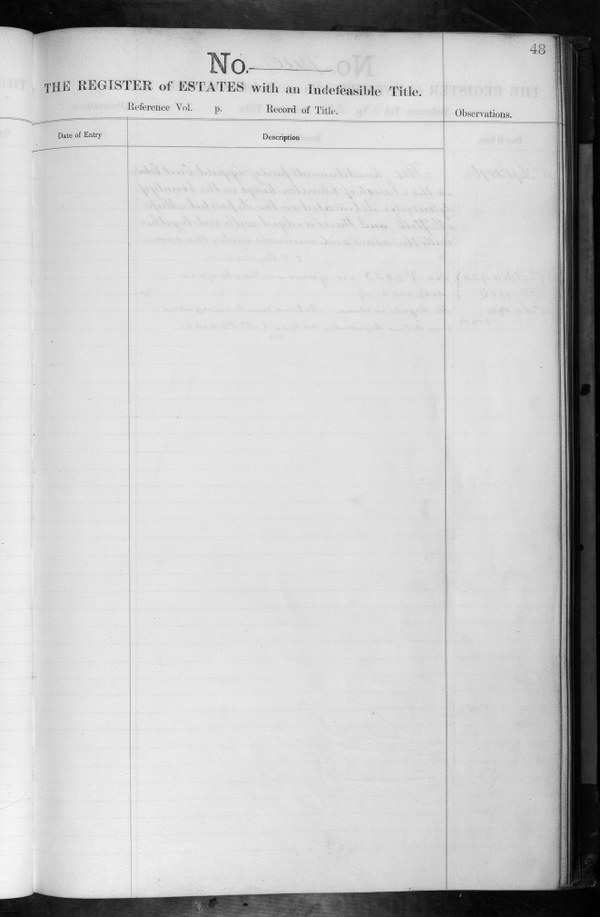 48
No.
THE REGISTER of ESTATES with an Indefeasible Title.
Reference Vol. p. Record of Title.
Observations.
Date of Entry
Description